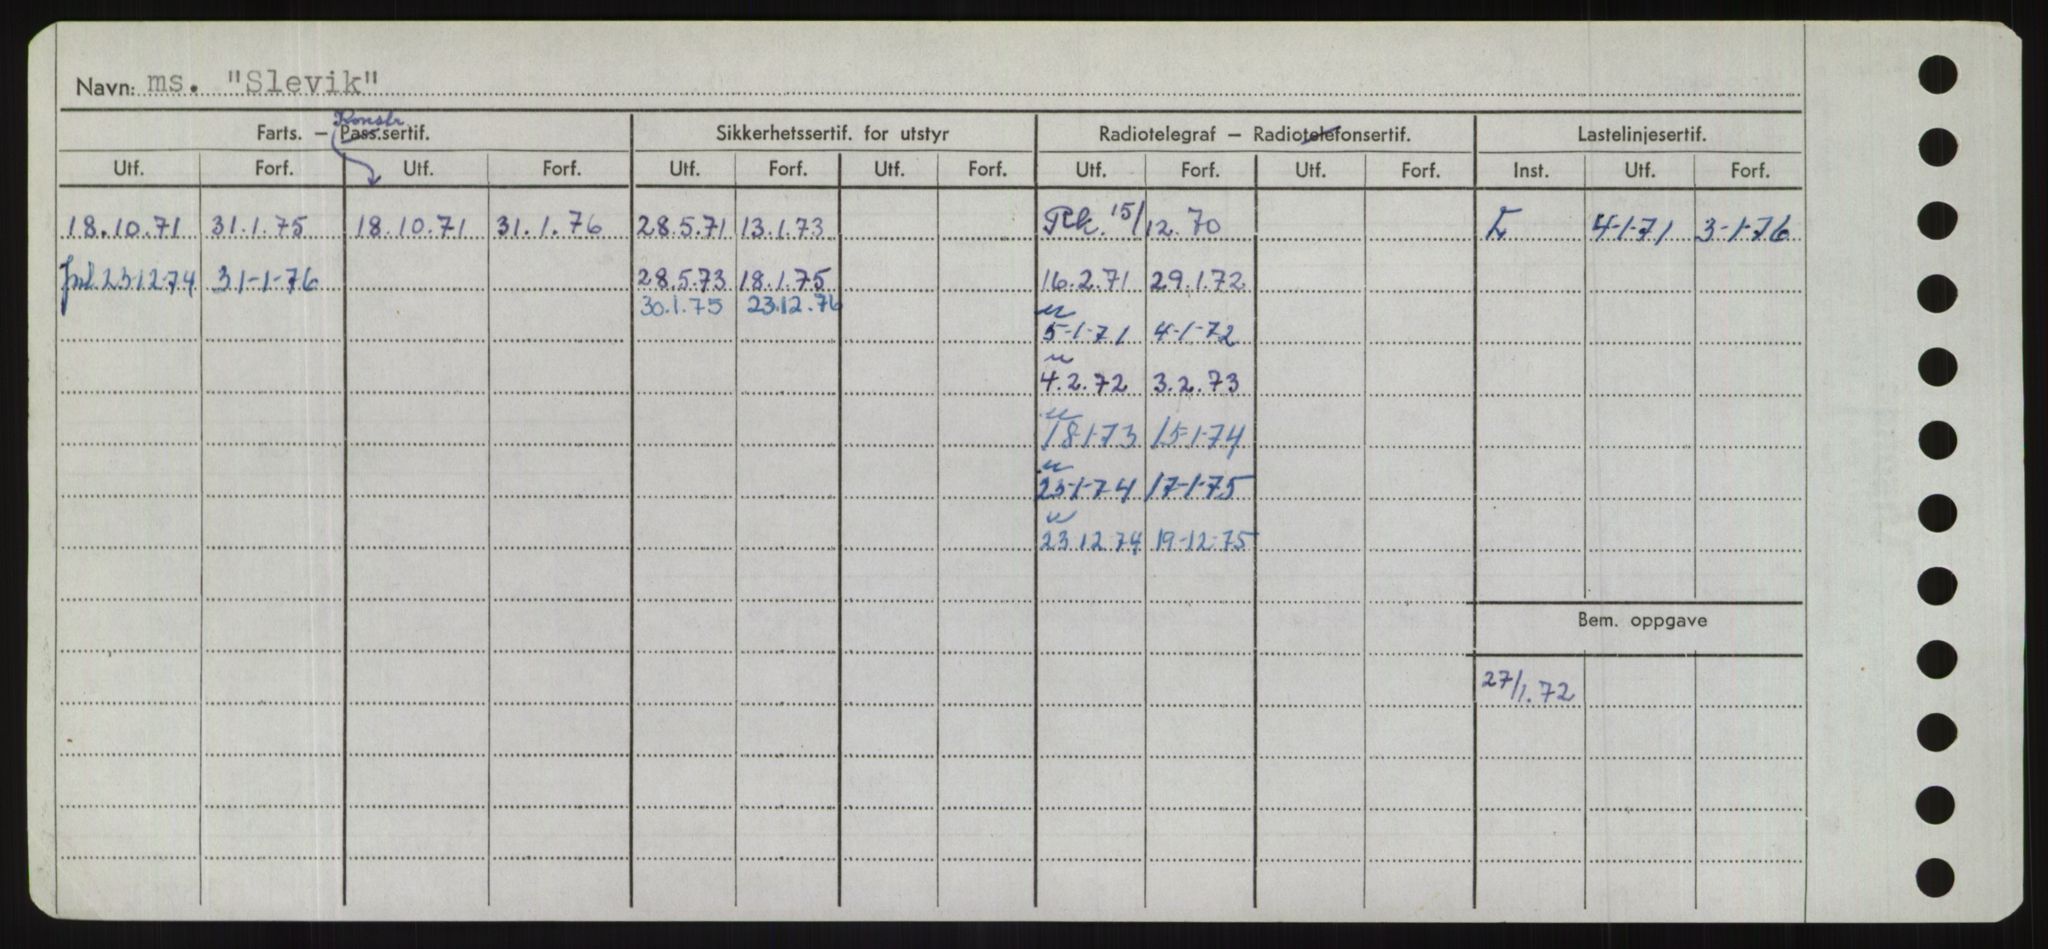 Navn: ms. "Slevik"
Konstr
Farts. — Pass.sertif. Sikkerhetssertif. for utstyr Radiotelegraf — Radiotelefonsertif. Lastelinjesertif.
Utf. Forf. Utf. Forf. Utf. Forf. Utf. Forf. Utf. Forf. Utf. Forf. Inst. Utf. Forf.
18.10.71 31.1.75 18.10.71 31.1.76 28.5.71 13.1.73 15/12.70 4-1-71 3-1-76
23-12-74 31-1-76 28.5.73 18.1.75 16.2.71 29.1.72
30.1.75 23.12.76
5-1-71 4-1-72
4.2.72 3.2.73
18-1-73 15-1-74
23-1-74 17-1-75
23.12.74 19-12-75
Bem. oppgave
27/1.72